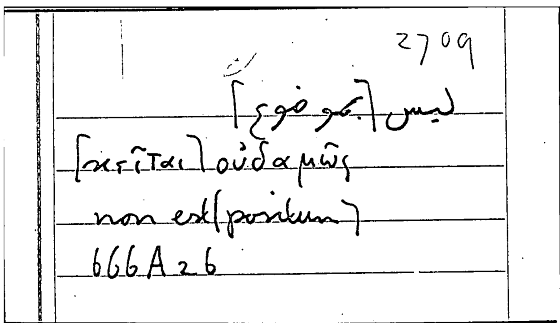 2709
ليس [بموضوع]
[κεῖται] οὐδαμῶς
non est [positum]
666A26